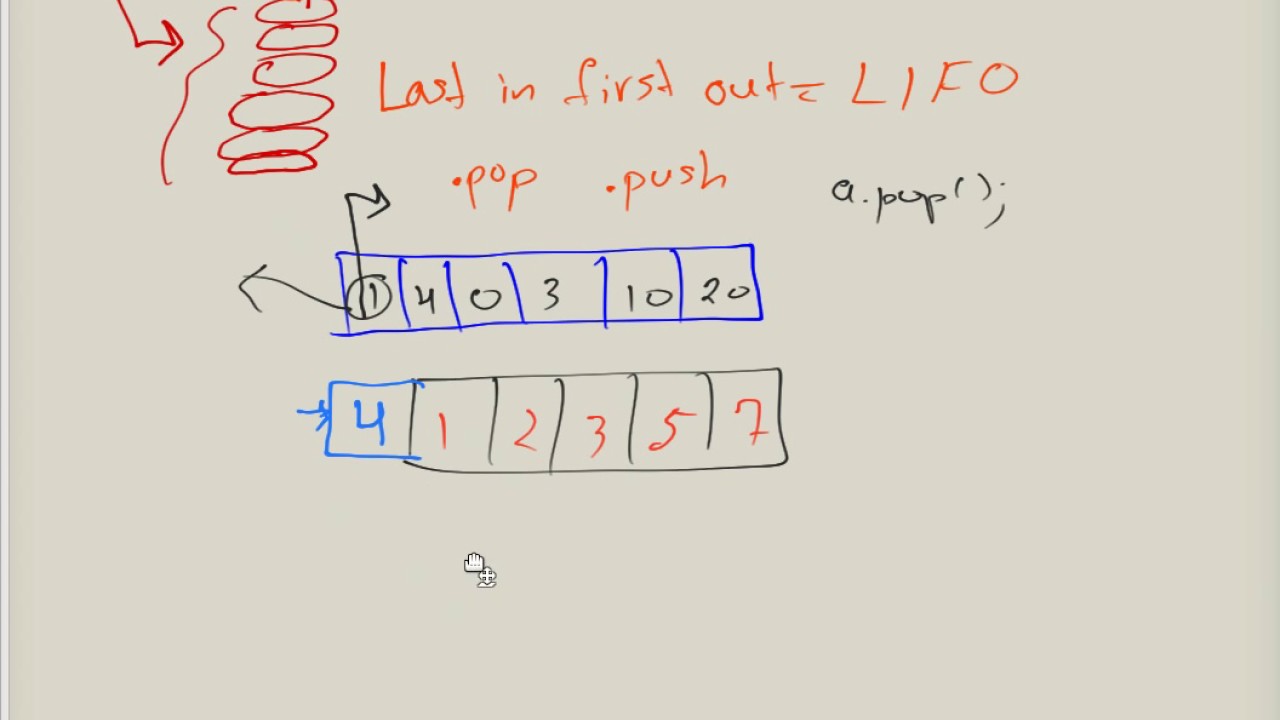 Last in first out = LIFO
.pop .push a.pop();
1 4 0 3 10 20
4 1 2 3 5 7